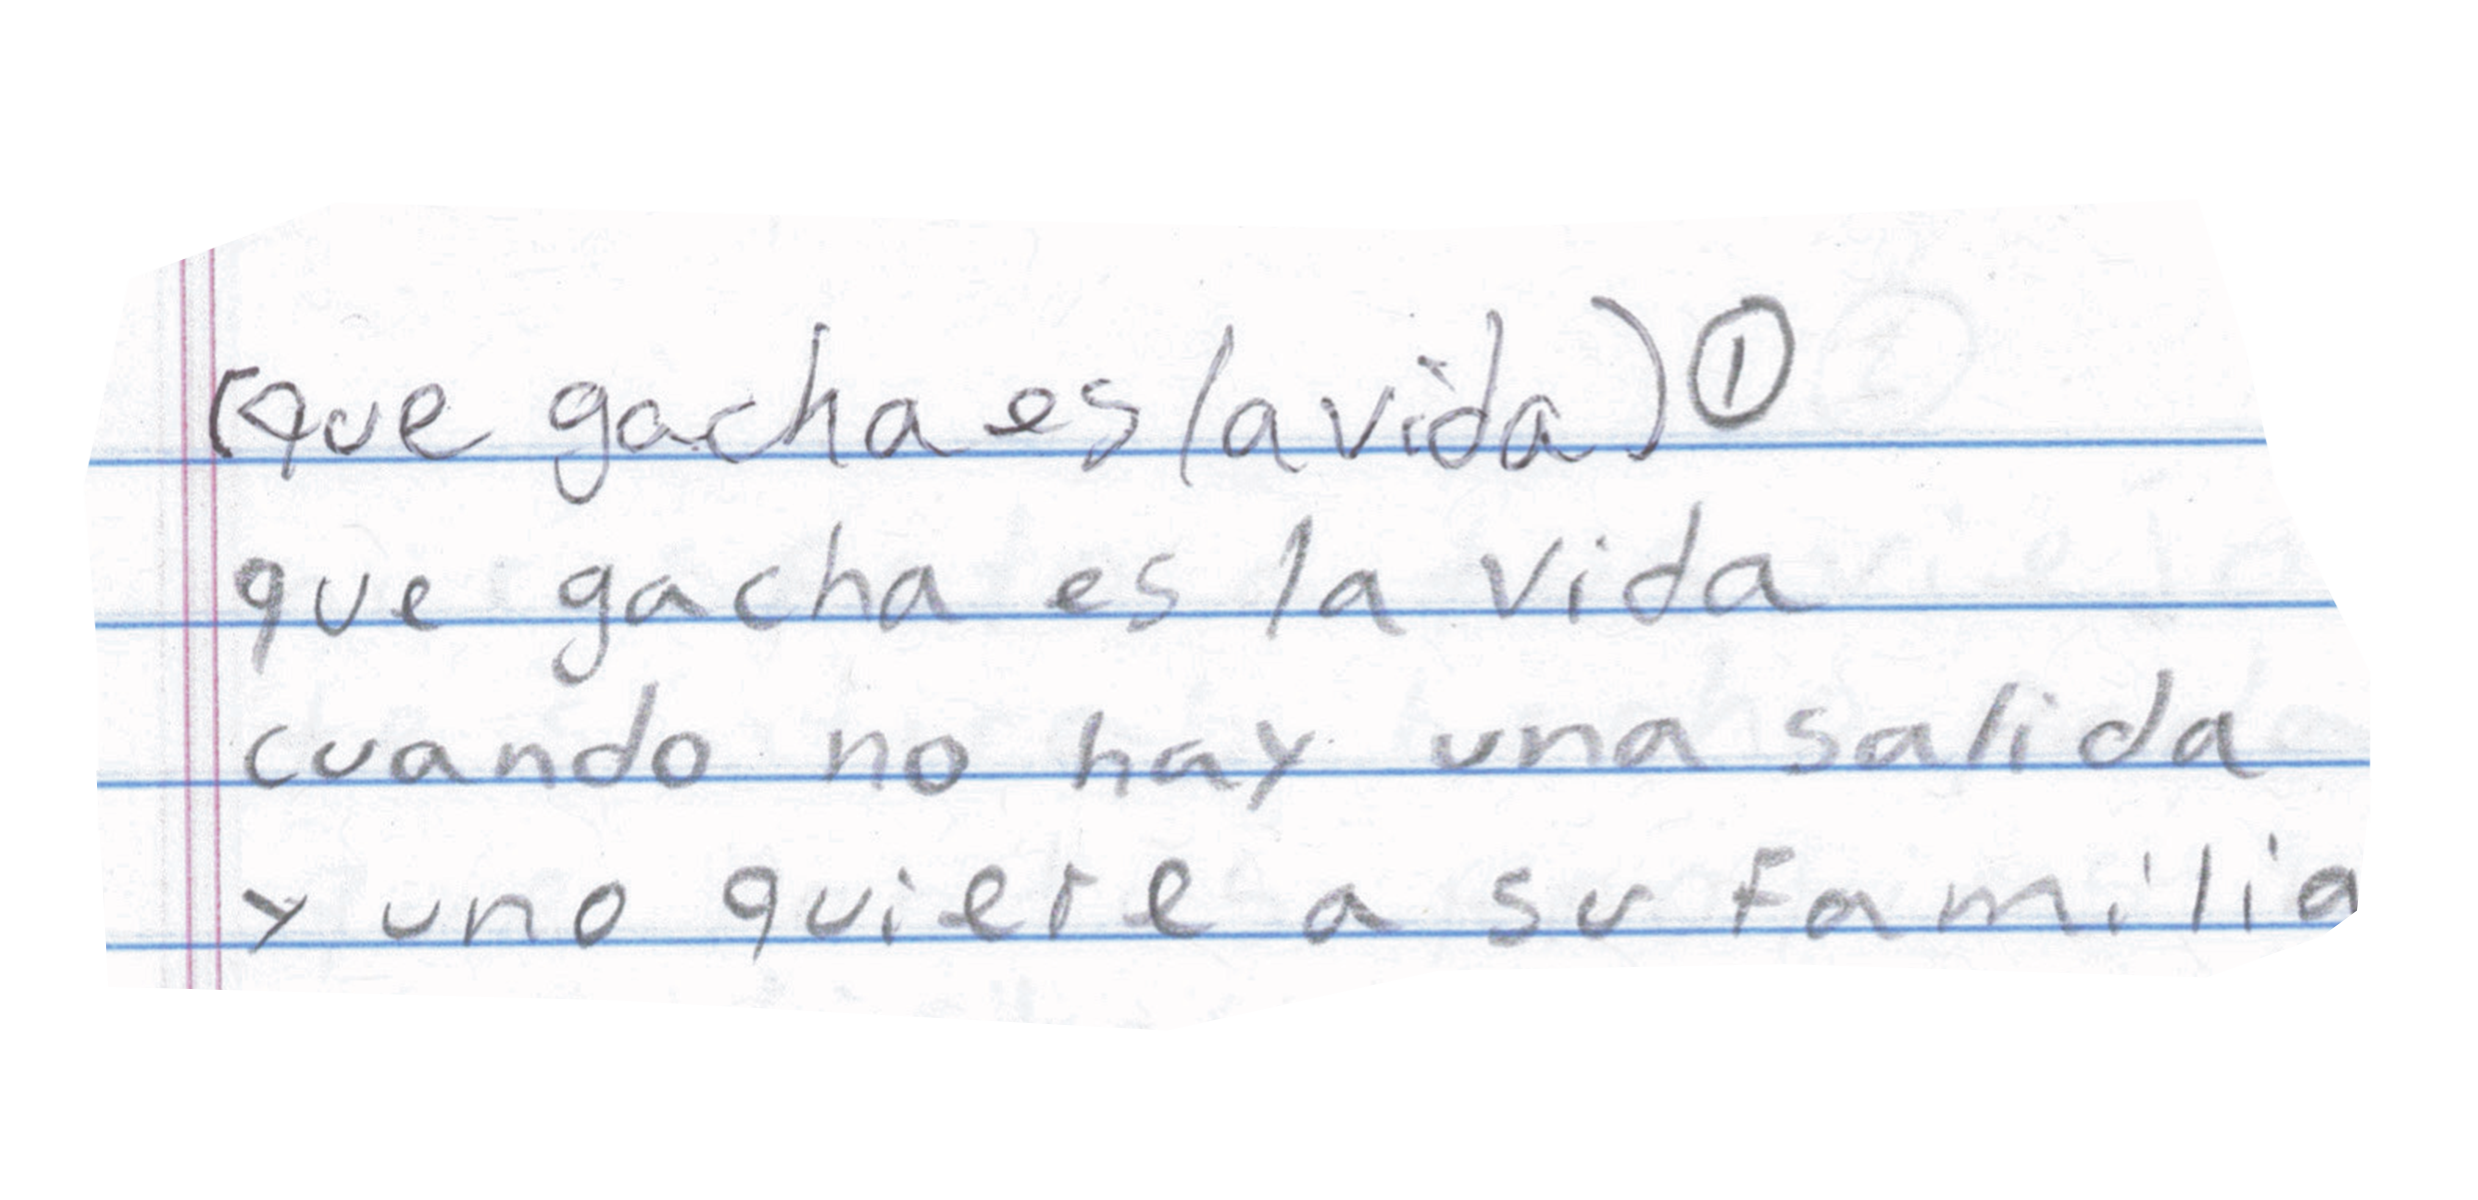 (Que gacha es la vida) ①
que gacha es la vida
cuando no hay una salida
y uno quiere a su familia